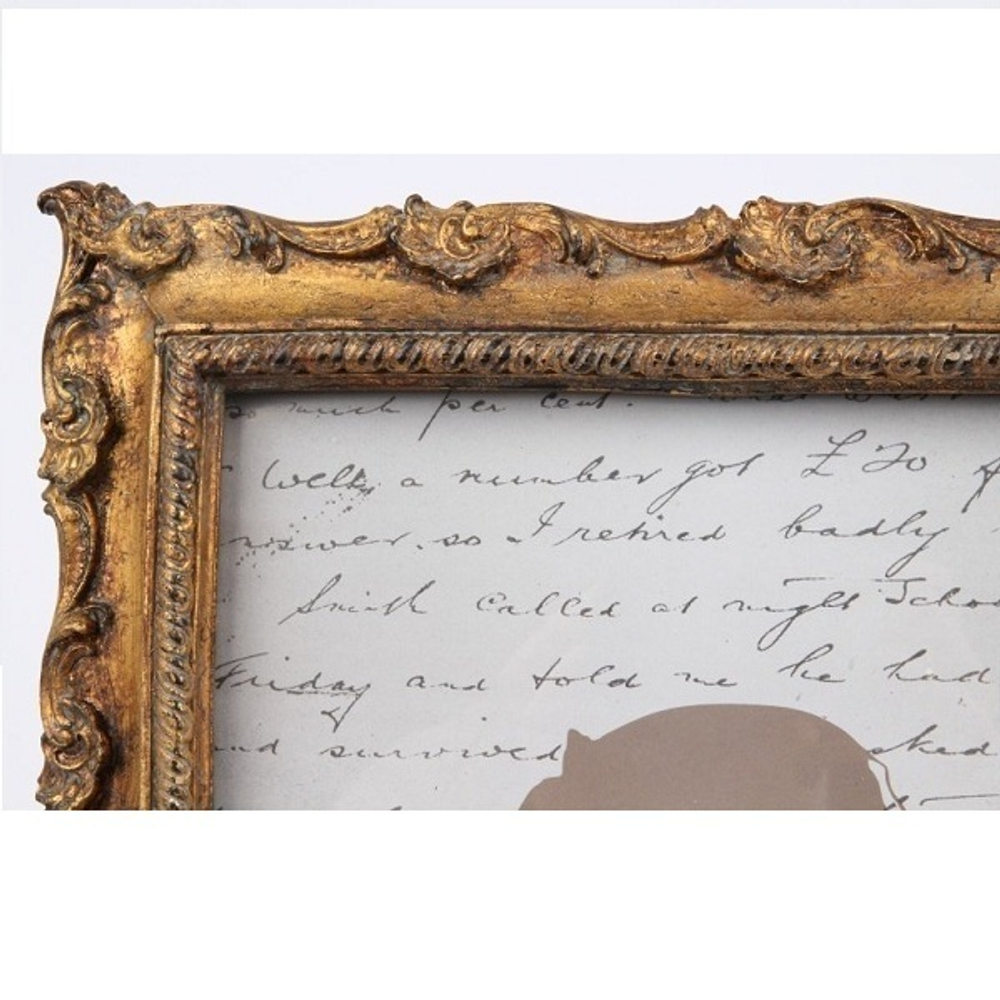 so much per cent.
Well, a number got £20
answer. so I retired badly
Smith called at night Schoo
Friday and told me he had
and survived sked